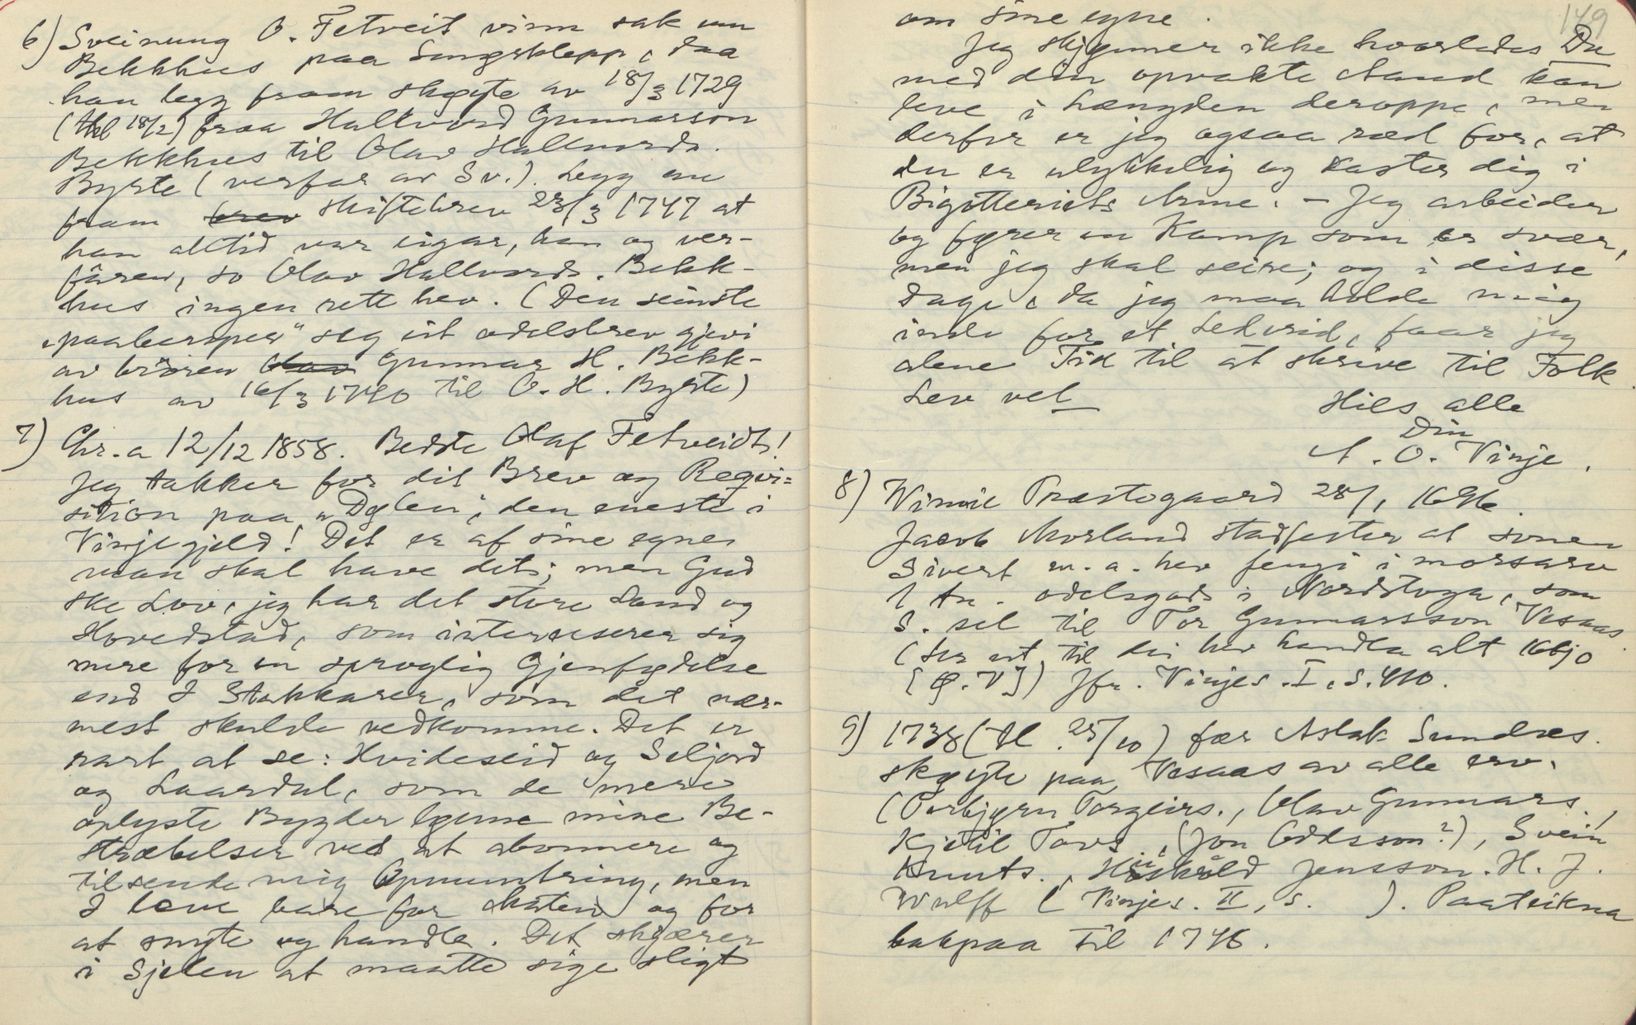 6) Sveinung O. Fetveit vinn sak um
Bekkhus paa Sungsklepp, daa
han legg fram skøyte av 18/3 1729
(tkl 18/2) fraa Hallvord Gunnarson
Bekkhus til Olav Hallvords.
Byrte (verfar av Sv.). Legg au
fram brev skiftebrev 23/3 1747 at
han alltid var eigar, han og ver-
fâren, so Olav Hallvords. Bekk-
hus ingen rett hev. (Den seinste
"paaberopea" seg eit odelsbrev gjevi
av broren Olav Gunnar H. Bekk-
hus av 16/3 1740 til O. H. Byrte)
7) Chr.a 12/12 1858. Bedste Olaf Fetveidt!
Jeg takker for dit Brev og Reqvi=
sition paa "Dølen", den eneste i
Vinjegjeld! Det er af sine egne
man skal have det; men Gud
ske Lov, jeg har det store Land og
Hovedstad, som interesserer sig
mere for en sproglig Gjenfødelse
end I Stakkarer, som det nær-
mest skulde vedkomme. Det er
rart at se: Hvideseid og Seljord
og Laardal, som de mere
oplyste Bygder lønne mine Be-
stræbelser ved at abonnere og
tilsende mig Opmuntring, men
I leve bare for Maten og for
at snyte og handle. Det skjærer
i Sjelen at maatte sige sligt
149
om sine egne.
Jeg skjønner ikke hvorledes Du
med din opvakte Aand kan
leve i Længden deroppe, men
derfor er jeg ogsaa ræd for, at
du er ulykkelig og kaster dig i
Bigotteriets Arme. – Jeg arbeider
og fører en Kamp som er svær,
men jeg skal seire; og i disse
Dage, da jeg maa holde mig
inde for et Ledvrid, faar jeg
alene Tid til at skrive til Folk.
Lev vel Hils alle
Din
A. O. Vinje.
8) Winnie Præstegaard 28/1 1696.
Jacob Morland stadfester at sonen
Sivert m. a. hev fengi i morsarv
1 tn. odelsgods i Nordstoga, som
S. sel til Tor Gunnarsson Vesaas.
(Ser ut til dei hev handla alt
[Ø. V]) Jfr. Vinjes. I, s. 410.
9) 1738 (tl. 25/10) fær Aslak Sundres.
skøyte paa Vesaas av alle erv.
(Torbjørn Torgeirs., Olav Gunnars.,
Kjetil Tovs., (Jon Oddsson?), Svein
Knuts., Høskuld Jensson. H. J.
Wulff (Vinjes. II, s. ). Paateikna
bakpaa til 1746.